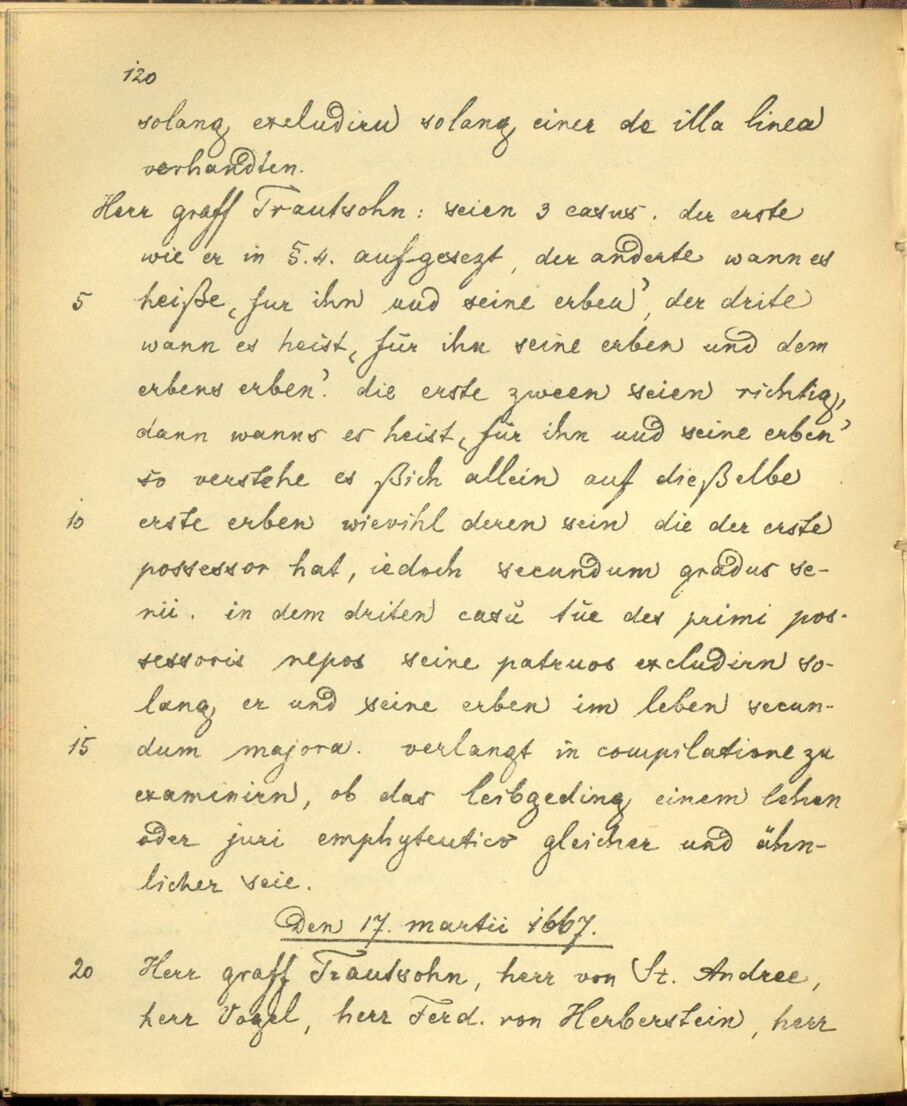 120
solang excludirn solang einer de illa linea
verhandten.
Herr graff Trautsohn: seien 3 casus. der erste
wie er in §.4. auf gesezt, der anderte wann es
5 heiße ‚fur ihn und seine erben’, der drite
wann es heist ‚für ihn seine erben und dem
erbens erben’. die erste zween seien richtig,
dann wanns es heist ‚für ihn und seine erben’
so verstehe es ßich allein auf dießelbe
10 erste erben wievihl deren sein die der erste
possessor hat, iedoch secundum gradus se-
nii. in dem driten casŭ tŭe des primi pos-
sessoris nepos seine patruos excludirn so-
lang er und seine erben im leben secun-
15 dum majora. verlangt in compilatione zu
examinirn, ob das leibgeding einem lehen
oder juri emphyteutico gleicher und ähn-
licher seie.
Den 17. martii 1667.
20 Herr graff Trautsohn, herr von St. Andree,
herr Vogel, herr Ferd. von Herberstein, herr